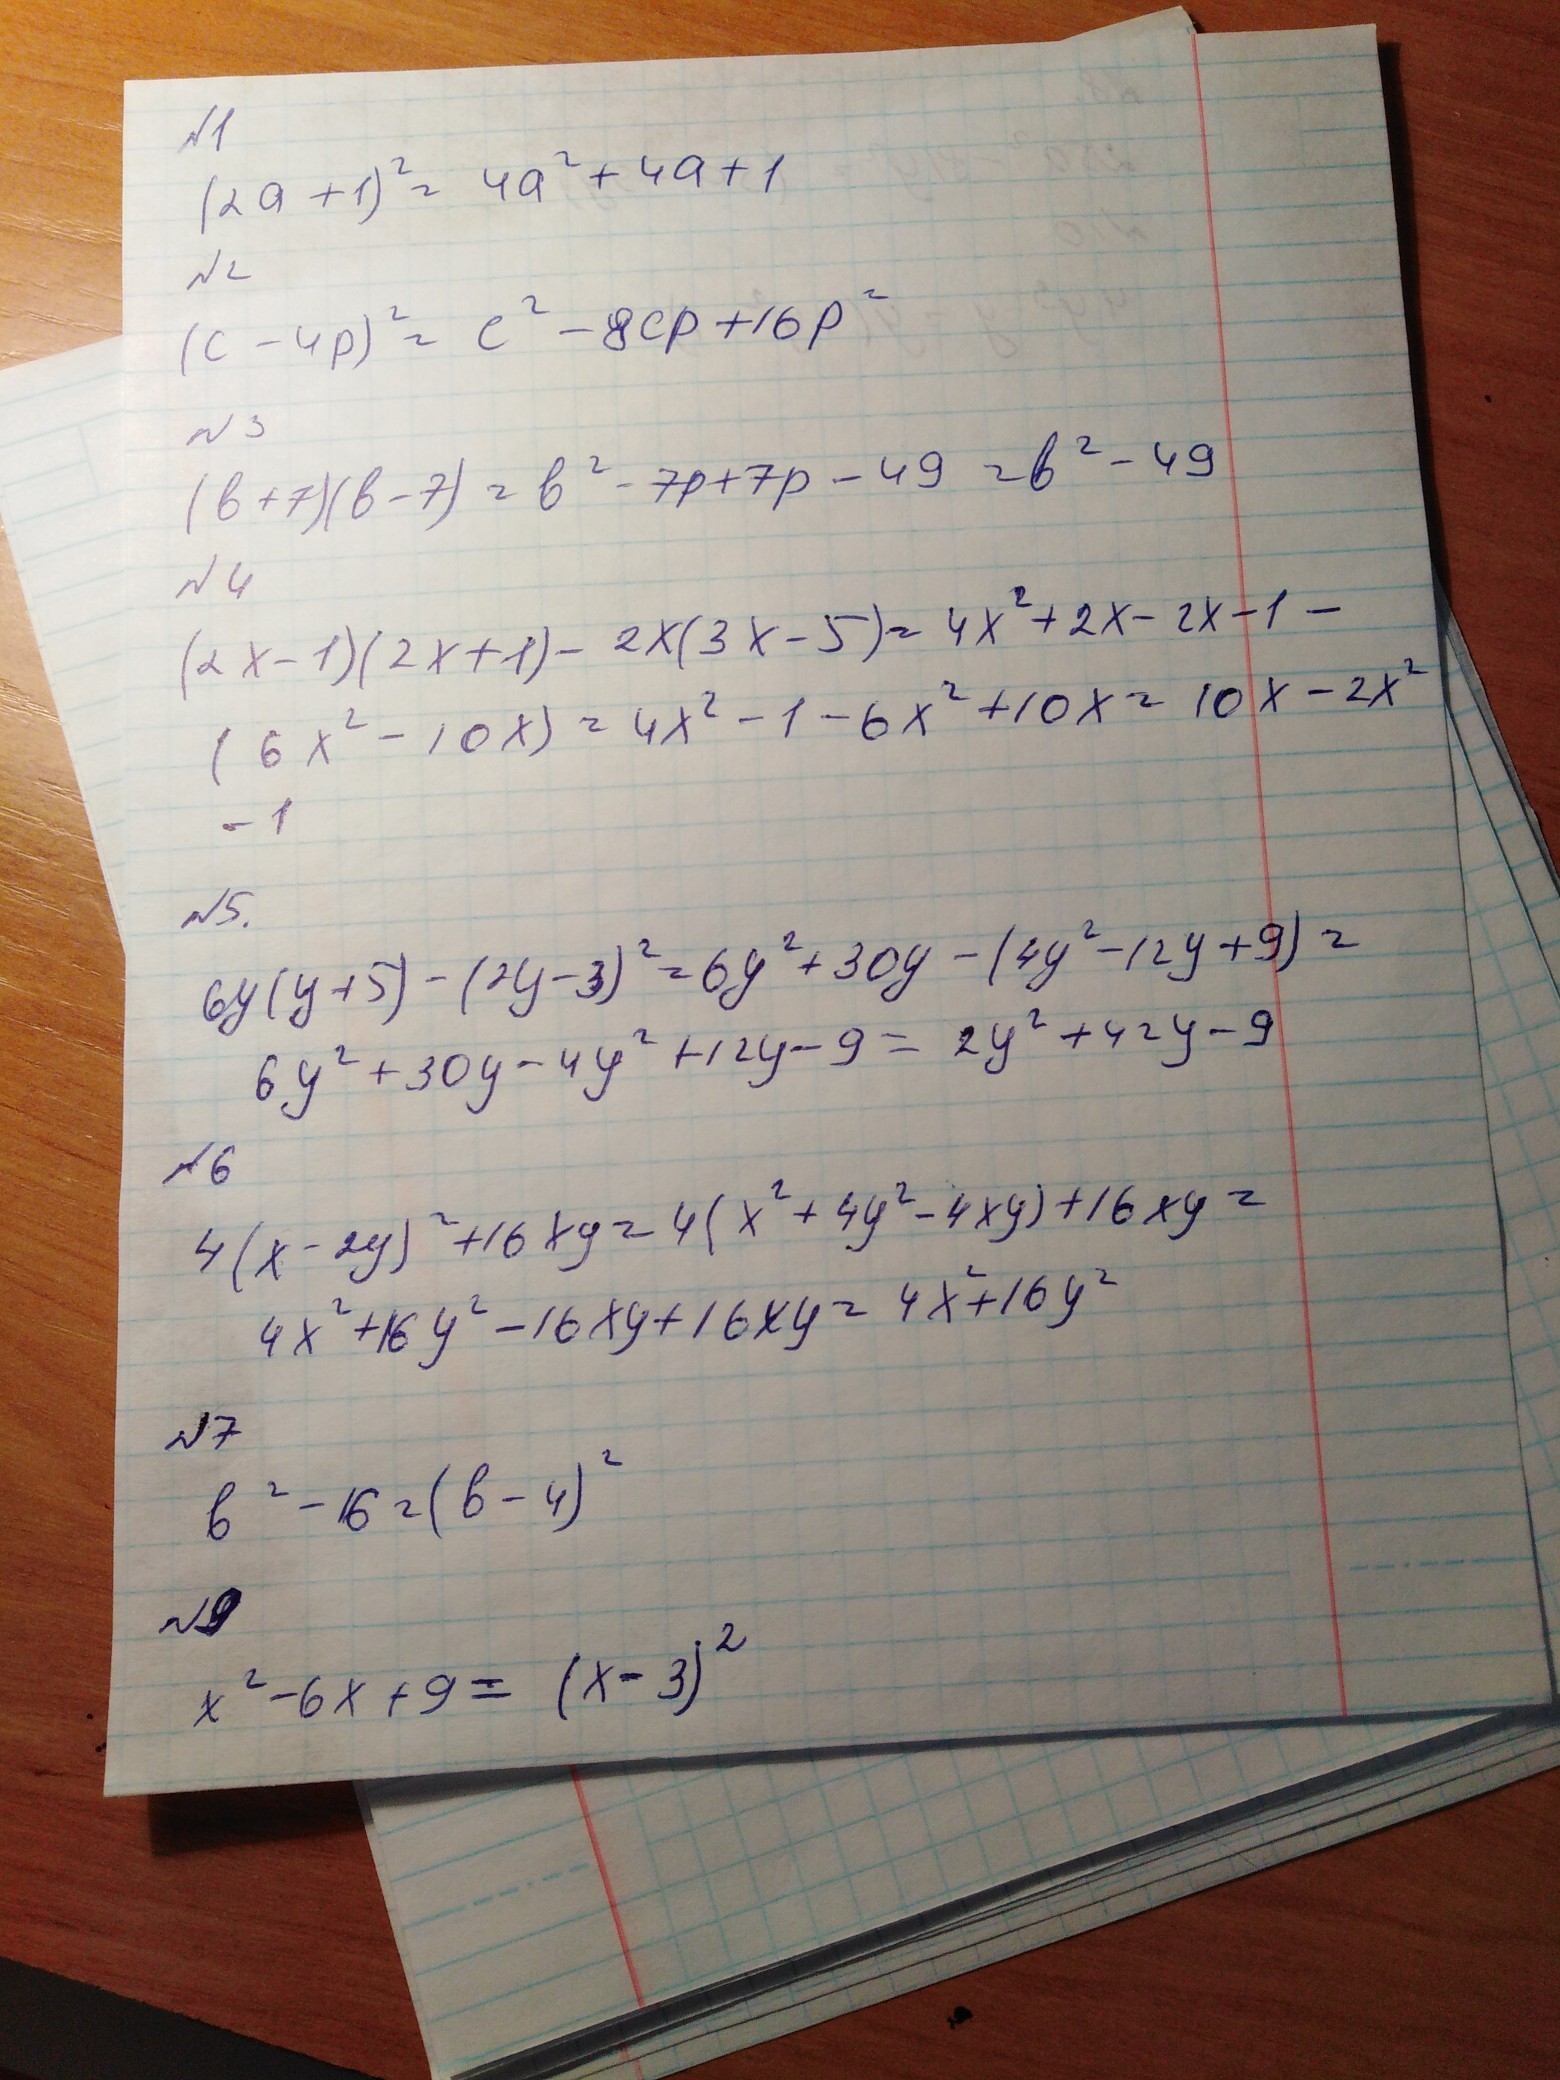 №1
(2a+1)² = 4a²+4a+1
№2
(c-4p)² = c²-8cp+16p²
№3
(b+7)(b-7) = b²-7p+7p-49 = b²-49
№4
(2x-1)(2x+1)-2x(3x-5) = 4x²+2x-2x-1-
(6x²-10x) = 4x²-1-6x²+10x = 10x-2x²
-1
№5.
6y(y+5)-(2y-3)² = 6y²+30y-(4y²-12y+9) =
6y²+30y-4y²+12y-9 = 2y²+42y-9
№6
4(x-2y)²+16xy = 4(x²+4y²-4xy)+16xy =
4x²+16y²-16xy+16xy = 4x²+16y²
№7
b²-16 = (b-4)²
№9
x²-6x+9 = (x-3)²